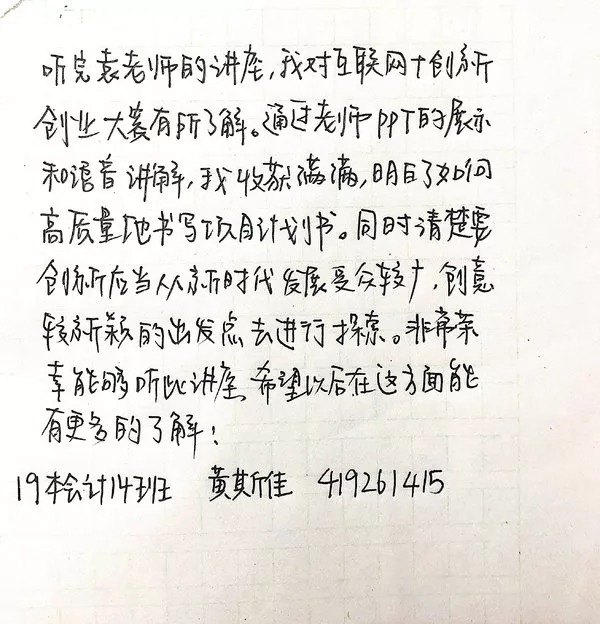 听完袁老师的讲座,我对互联网+创新
创业大赛有所了解。通过老师PPT的展示
和语音讲解,我收获满满,明白了如何
高质量地书写项目计划书。同时清楚要
创新应当从新时代发展受众较广,创意
较新颖的出发点去进行探索。非常荣
幸能够听此讲座,希望以后在这方面能
有更多的了解!
19本会计14班 黄斯佳 419261415